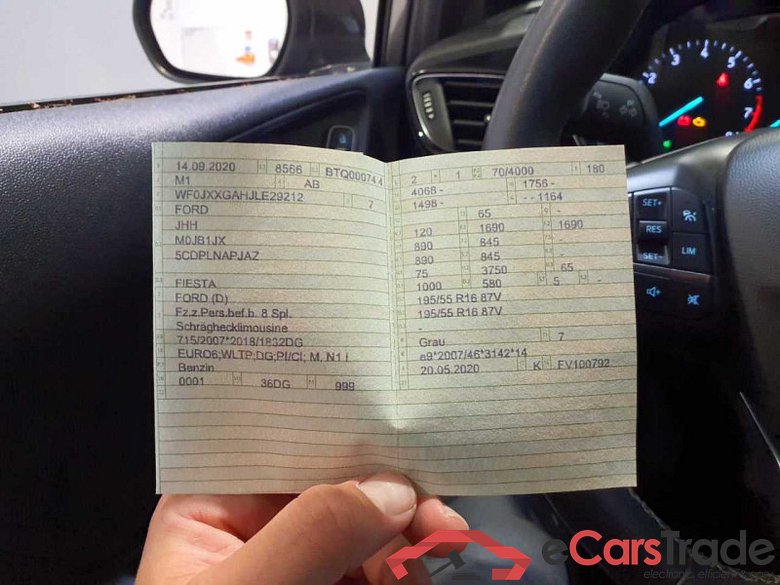 14.09.2020 8566 BTQ00074 4
M1 AB
WF0JXXGAHJLE29212 7
FORD
JHH
M0JB1JX
5CDPLNAPJAZ
FIESTA
FORD (D)
Fz.z.Pers.bef.b. 8 Spl.
Schräghecklimousine
715/2007*2018/1832DG
EURO6;WLTP;DG;PI/CI; M, N1 I
Benzin
0001 36DG 999
2 1 70/4000 180
4068 - 1756 -
1498 - - - 1164
65 -
120 1690 1690
890 845 -
890 845 -
75 3750 65
1000 580 5 -
195/55 R16 87V
195/55 R16 87V
-
Grau 7
e9*2007/46*3142*14
20.05.2020 K FV100792
2 3 4 5 6 7
SET+
RES
SET-
LIM
eCarsTrade
electronic, efficient & easy